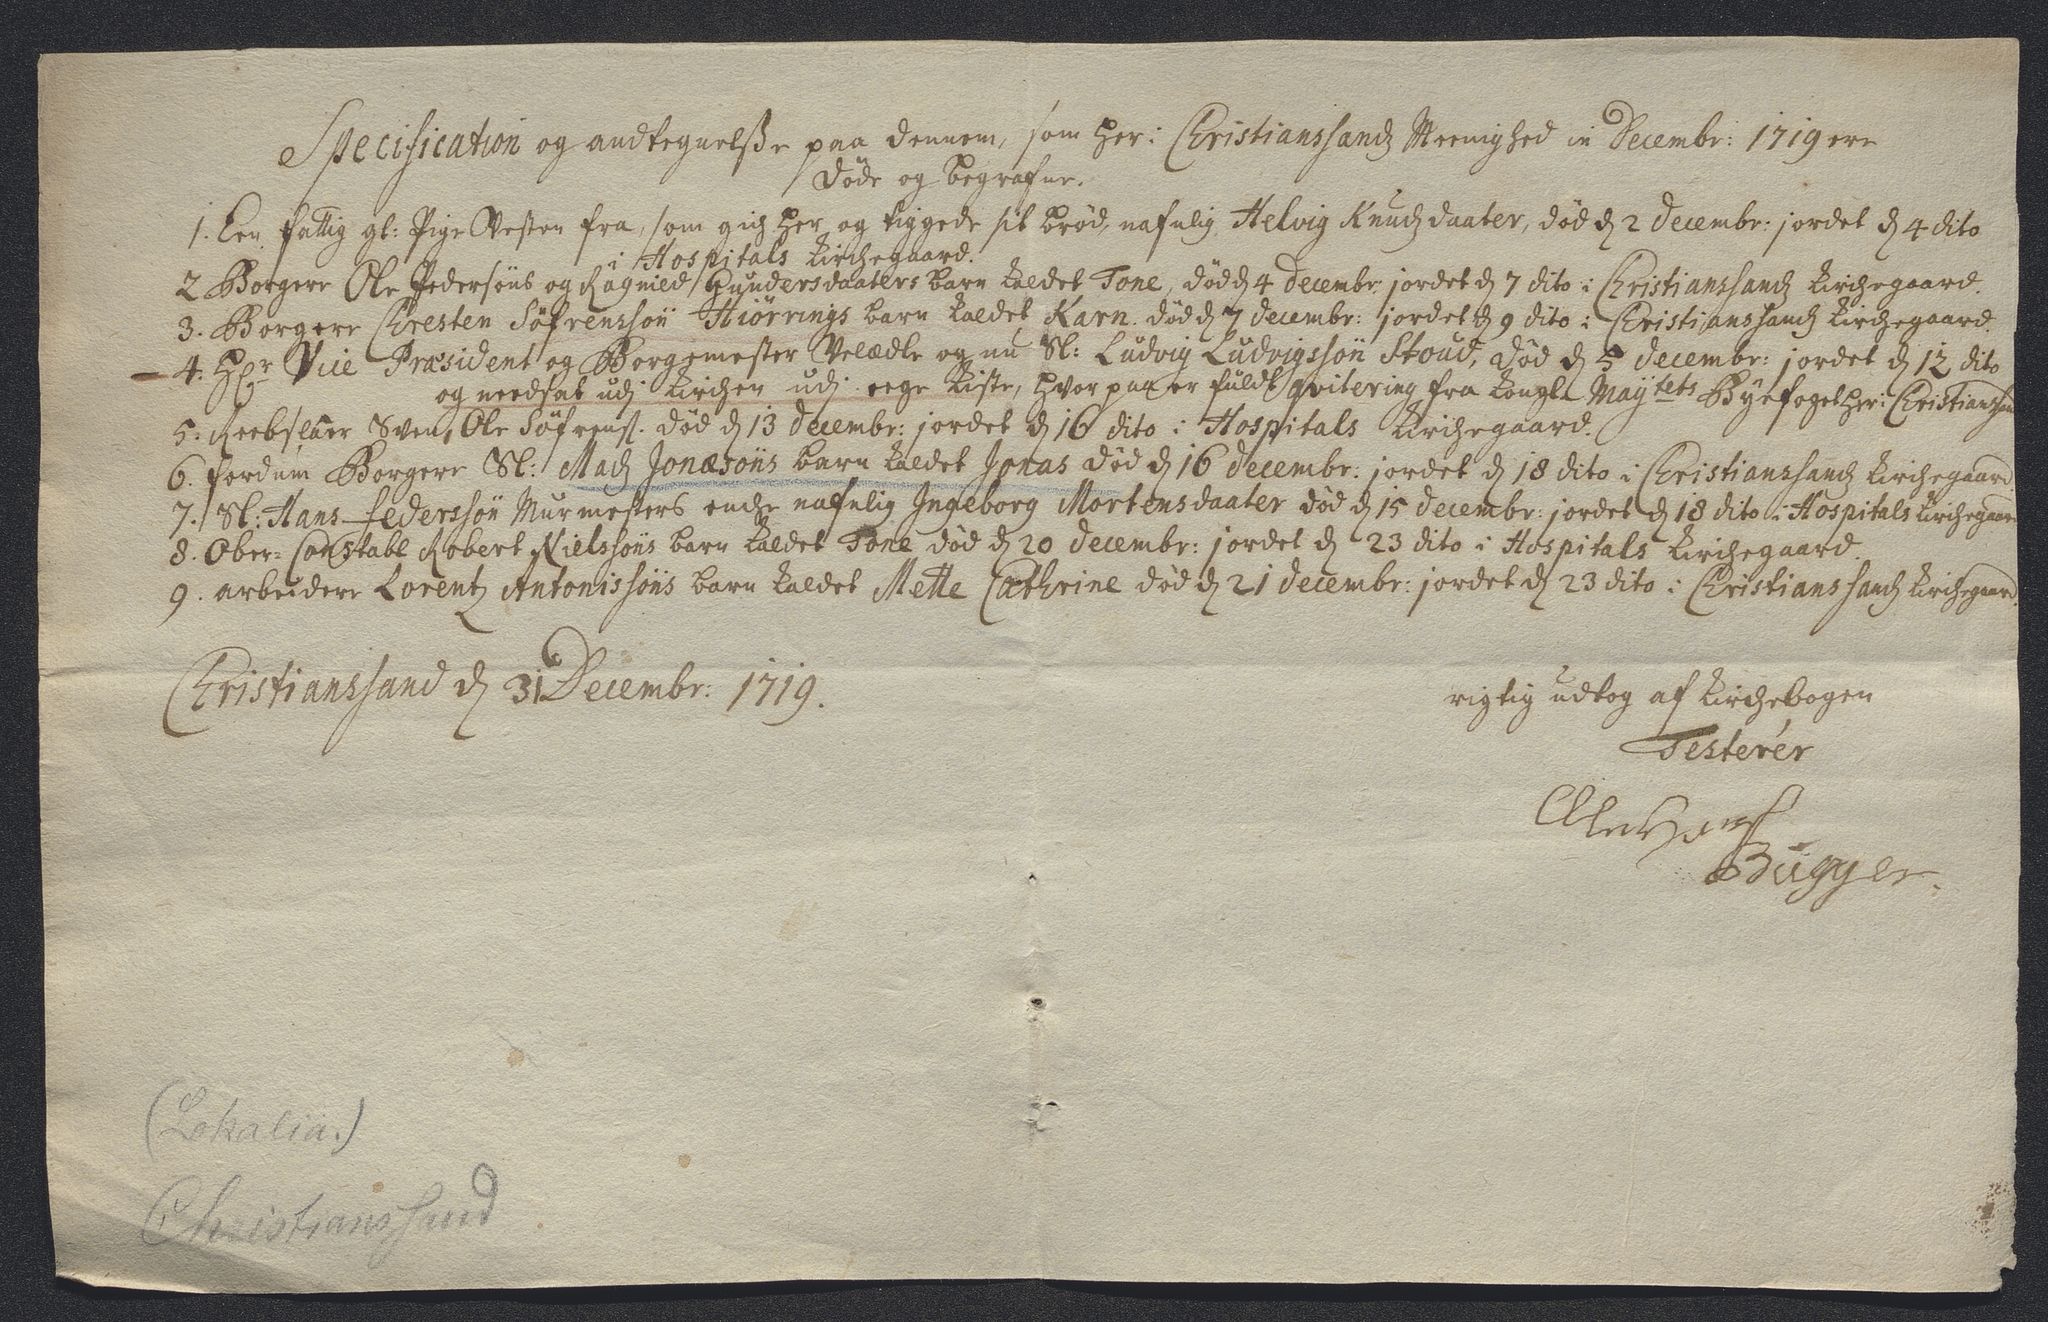 Specification og andtegnelsse paa dennem, som her i Christianssandz Meenighed in Decembr: 1719 ere
døde og begrafne.
1. Een fattig gl: Pige Vesten fra, som gich her og tiggede sit brød, nafnlig Helvig Knudzdaater, død d 2 Decembr: jordet d 4 dito
i Hospitals Kirchegaard.
2 Borgere Ole Pedersöns og Ragnied Gundersdaaters barn kaldet Tone, død d 4 Decembr, jordet d 7 dito i Christianssandz Kirchegaard.
3. Borgere Chresten Söfrenssön Hiörrings barn kaldet Karn. død d 7 Decembr: jordet d 9 dito i Christianssandz Kirchegaard.
4. Hr Vice Præsident og Borgemester Velædle og nu Sl: Ludvig Ludvigssön Stoud, død d 5 Decembr: jordet d 12 dito
og needsat udj Kirchen udj eege Kiste, hvor paa er fuldt qvitering fra Kongl. Maytets Byefoget her i Christianssand
5. Reebslaer Svend Ole Söfrens. død d 13 Decembr: jordet d 16 dito i Hospitals Kirchegaard.
6. fordum Borgere Sl: Madz Jonæsöns barn kaldet Jonas død d 16 Decembr: jordet d 18 dito i Christianssandz Kirchegaard
7. Sl: Hans Federssön Murmesters enche nafnlig Ingeborg Mortensdaater død d 15 Decembr: jordet d 18 dito i Hospitals Kirchegaard
8. Ober-Constabl Robert Nielssöns barn kaldet Tone død d 20 Decembr: jordet d 23 dito i Hospitals Kirchegaard.
9. arbeidere Lorentz Antonissöns barn kaldet Mette Cathrine død d 21 Decembr: jordet d 23 dito i Christianssandz Kirchegaard.
Christianssand d 31 Decembr: 1719.
rigtig udtog af Kirchebogen
Testerer
Bugger.
(Lokalia.)
Christianssand